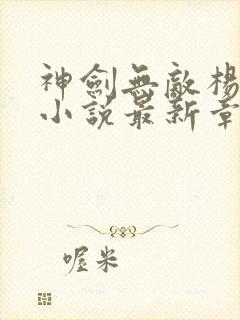 神劍無敵楊
小說最新章
喔米